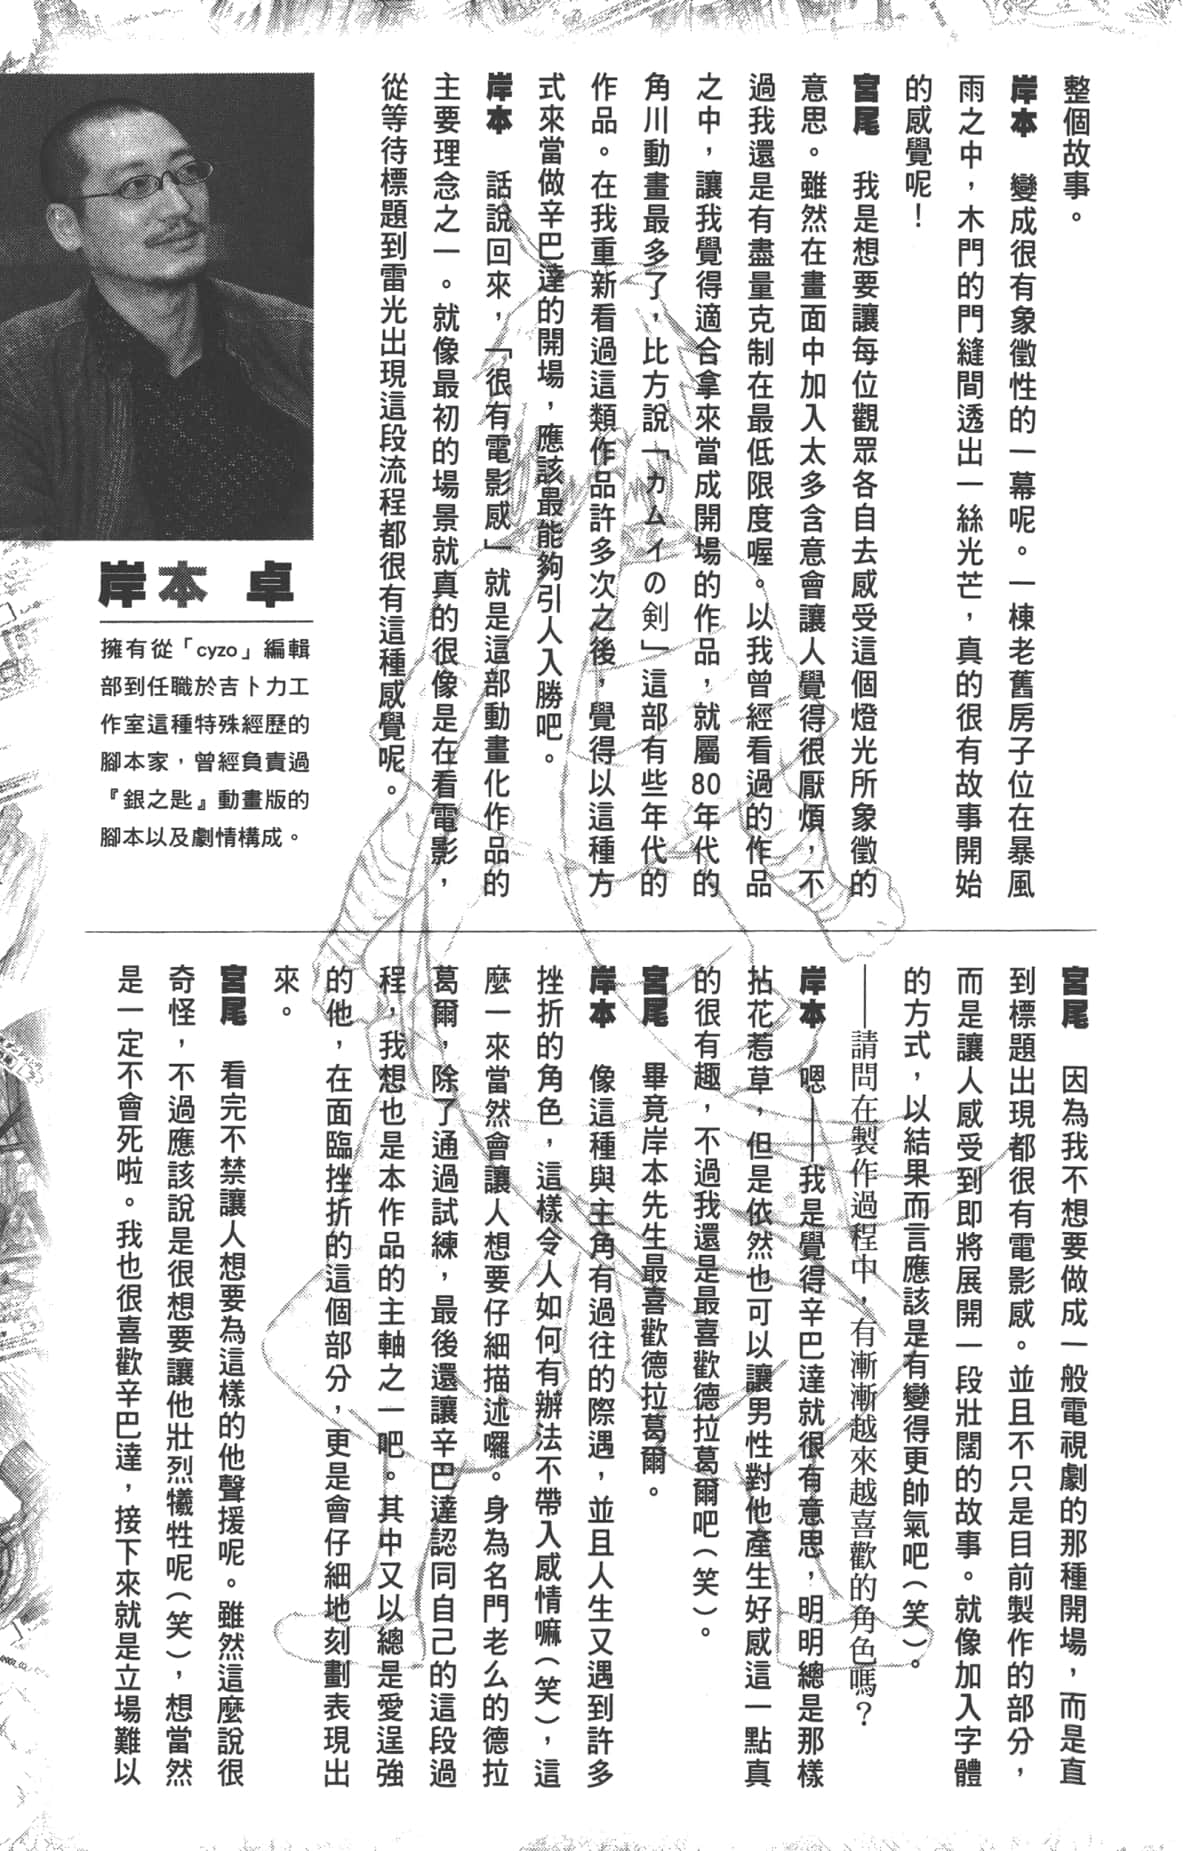 整個故事。
岸本　變成很有象徵性的一幕呢。一棟老舊房子位在暴風
雨之中，木門的門縫間透出一絲光芒，真的很有故事開始
的感覺呢！
宮尾　我是想要讓每位觀眾各自去感受這個燈光所象徵的
意思。雖然在畫面中加入太多含意會讓人覺得很厭煩，不
過我還是有盡量克制在最低限度喔。以我曾經看過的作品
之中，讓我覺得適合拿來當成開場的作品，就屬80年代的
角川動畫最多了，比方說「カムイの剣」這部有些年代的
作品。在我重新看過這類作品許多次之後，覺得以這種方
式來當做辛巴達的開場，應該最能夠引人入勝吧。
岸本　話說回來，「很有電影感」就是這部動畫化作品的
主要理念之一。就像最初的場景就真的很像是在看電影，
從等待標題到雷光出現這段流程都很有這種感覺呢。
岸本　卓
擁有從「cyzo」編輯
部到任職於吉卜力工
作室這種特殊經歷的
腳本家，曾經負責過
『銀之匙』動畫版的
腳本以及劇情構成。
宮尾　因為我不想要做成一般電視劇的那種開場，而是直
到標題出現都很有電影感。並且不只是目前製作的部分，
而是讓人感受到即將展開一段壯闊的故事。就像加入字體
的方式，以結果而言應該是有變得更帥氣吧（笑）。
——請問在製作過程中，有漸漸越來越喜歡的角色嗎？
岸本　嗯——我是覺得辛巴達就很有意思，明明總是那樣
拈花惹草，但是依然也可以讓男性對他產生好感這一點真
的很有趣，不過我還是最喜歡德拉葛爾吧（笑）。
宮尾　畢竟岸本先生最喜歡德拉葛爾。
岸本　像這種與主角有過往的際遇，並且人生又遇到許多
挫折的角色，這樣令人如何有辦法不帶入感情嘛（笑），這
麼一來當然會讓人想要仔細描述囉。身為名門老么的德拉
葛爾，除了通過試練，最後還讓辛巴達認同自己的這段過
程，我想也是本作品的主軸之一吧。其中又以總是愛逞強
的他，在面臨挫折的這個部分，更是會仔細地刻劃表現出
來。
宮尾　看完不禁讓人想要為這樣的他聲援呢。雖然這麼說很
奇怪，不過應該說是很想要讓他壯烈犧牲呢（笑），想當然
是一定不會死啦。我也很喜歡辛巴達，接下來就是立場難以